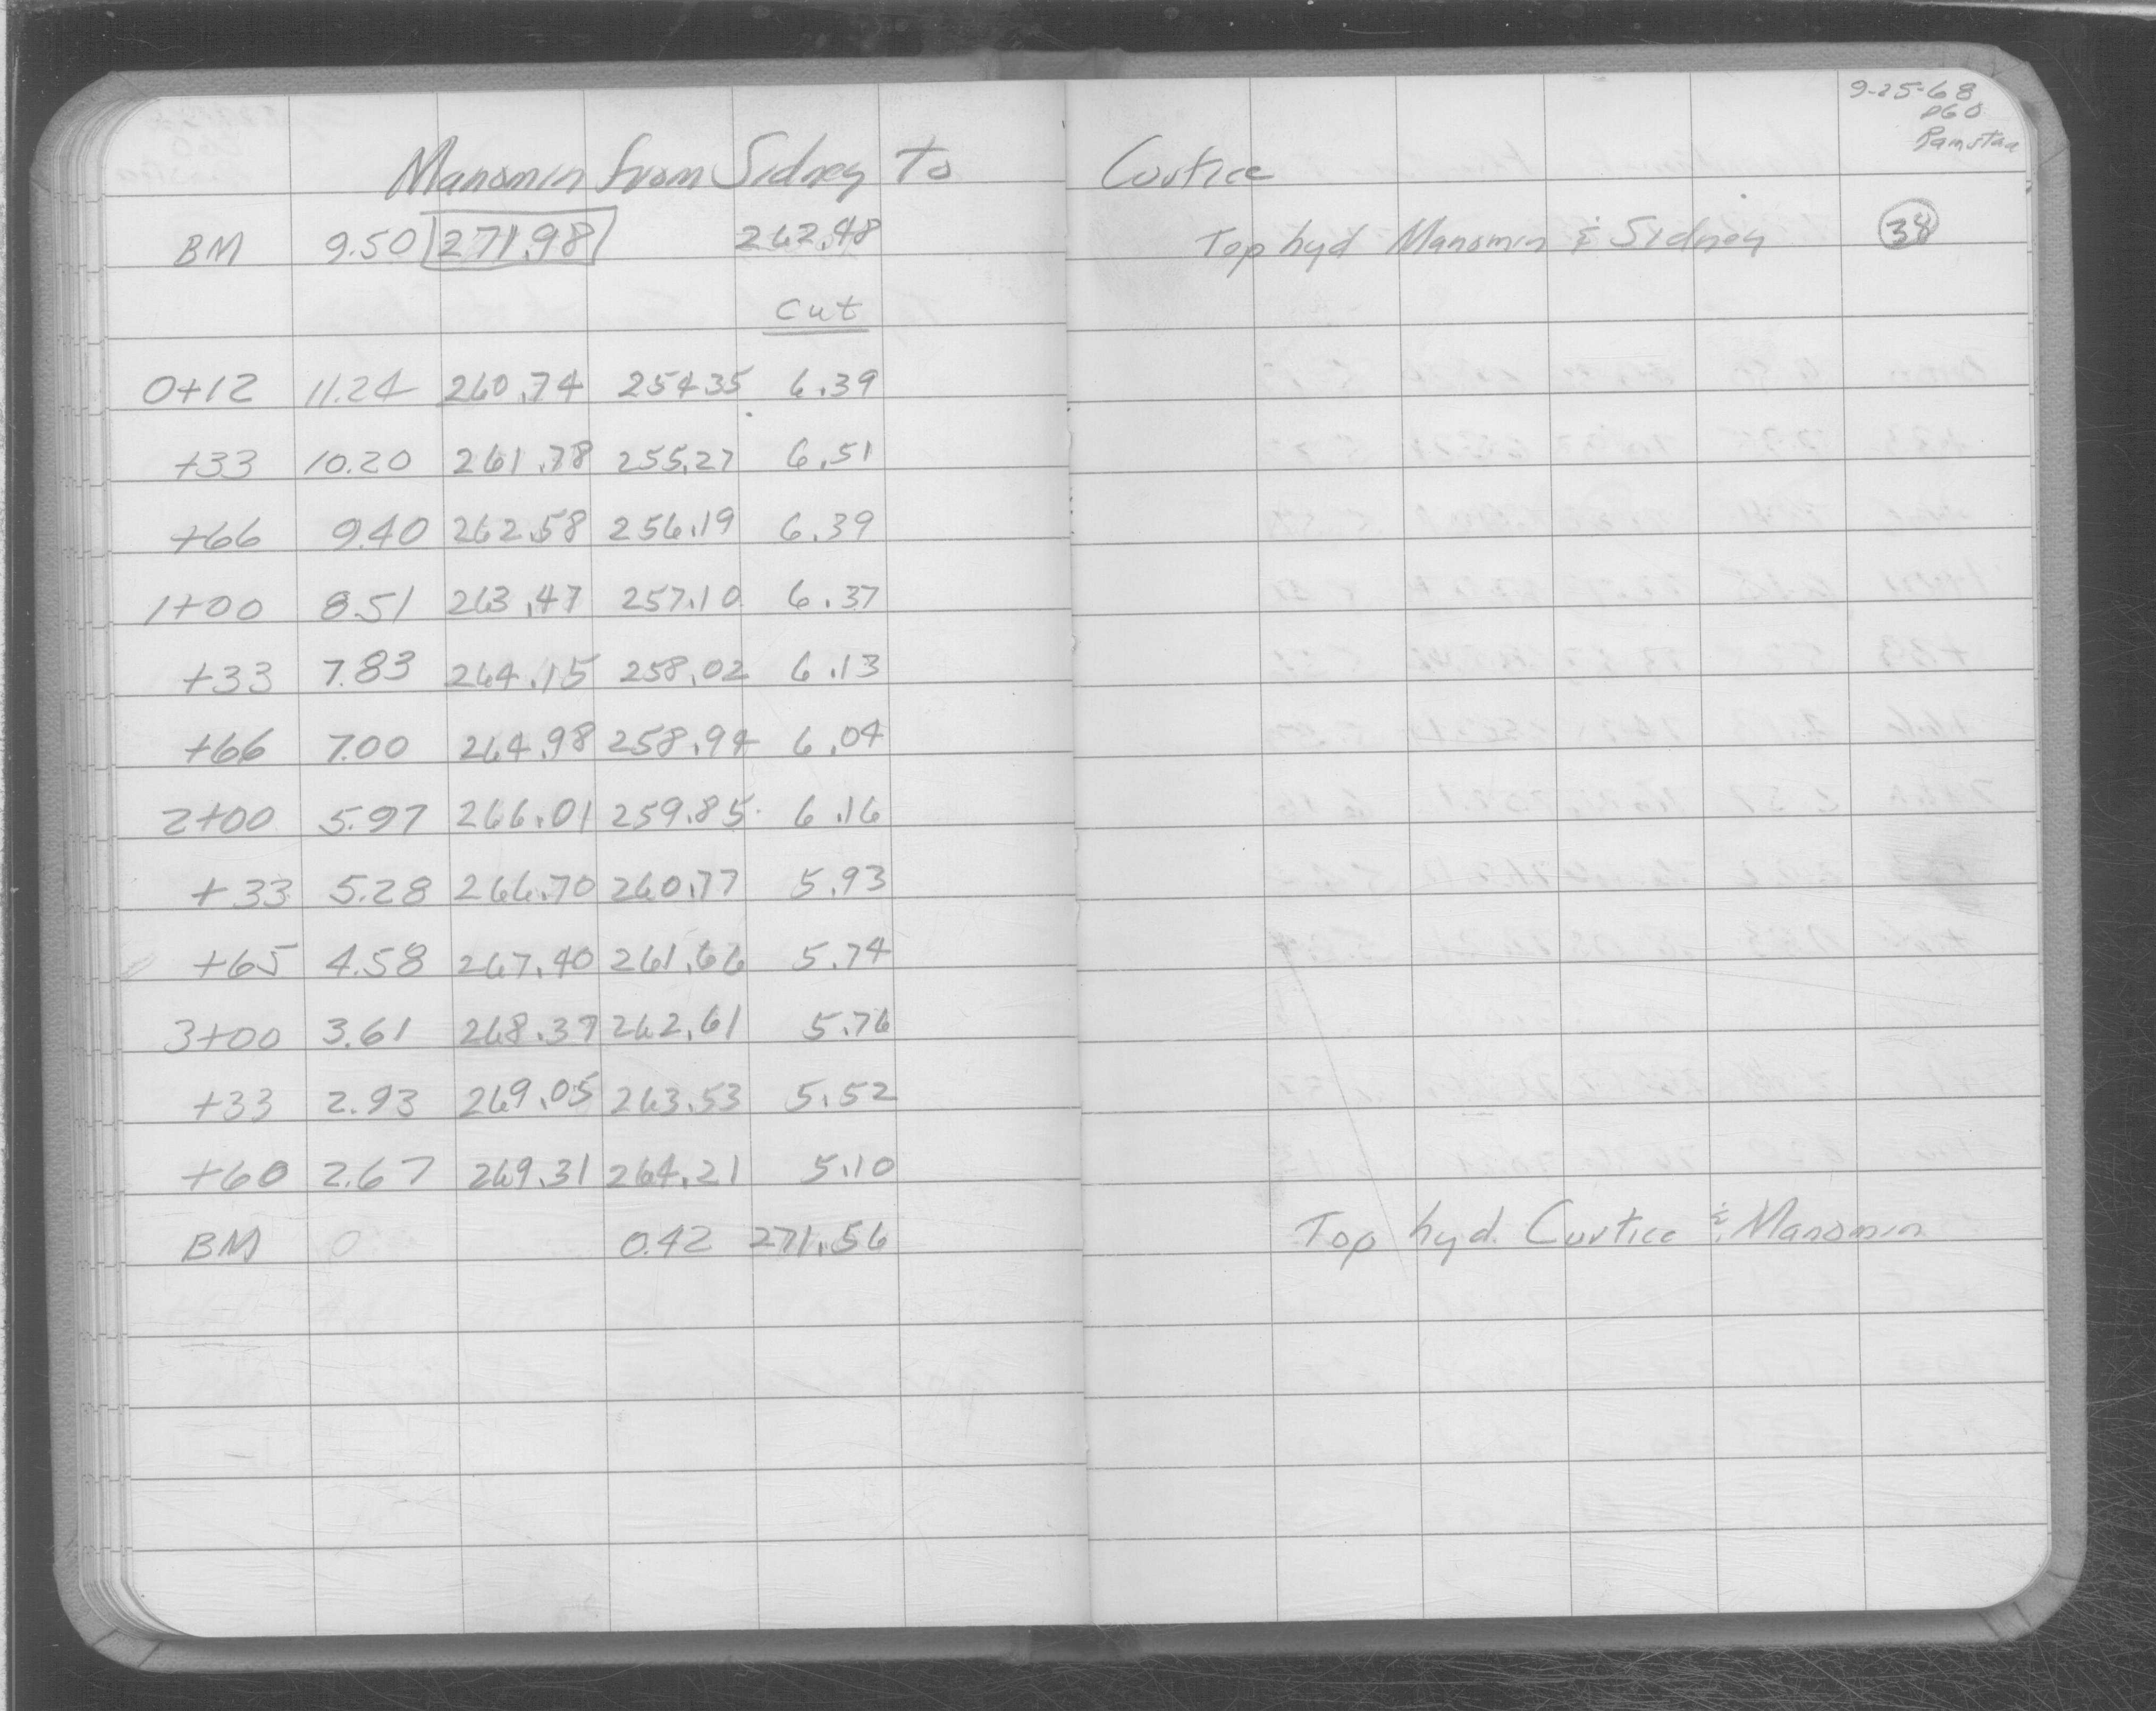 9-25-68
PGO
Ramstad
Manomin from Sidney to Curtice
BM 9.50 271.98 262.48 Top hyd Manomin & Sidney 38
Cut
0+12 11.24 260.74 254.35 6.39
+33 10.20 261.78 255.27 6.51
+66 9.40 262.58 256.19 6.39
1+00 8.51 263.47 257.10 6.37
+33 7.83 264.15 258.02 6.13
+66 7.00 264.98 258.94 6.04
2+00 5.97 266.01 259.85 6.16
+33 5.28 266.70 260.77 5.93
+65 4.58 267.40 261.66 5.74
3+00 3.61 268.37 262.61 5.76
+33 2.93 269.05 263.53 5.52
+60 2.67 269.31 264.21 5.10
BM 0.42 271.56 Top hyd. Curtice & Manomin